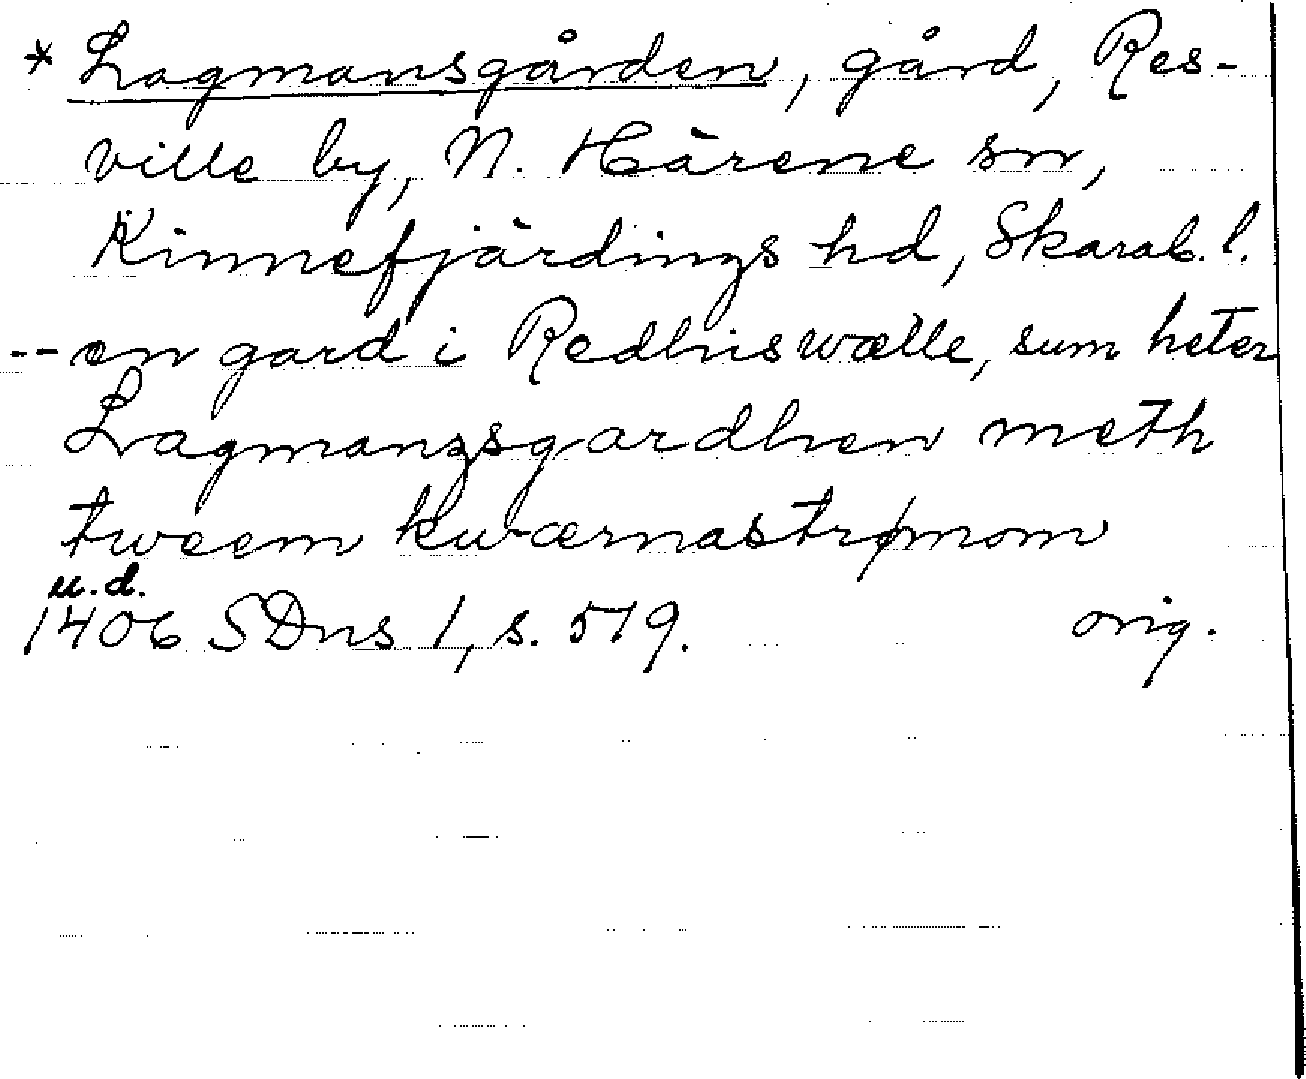 * Lagmansgården, gård, Res-
ville by, N. Härene sn,
Kinnefjärdings hd, Skarab. l.
-- en gard i Redhiswælle, sum heter
Lagmanzsgardhen meth
tweem kwærnastrømom
u.d.
1406 SDns 1, s. 519. orig.